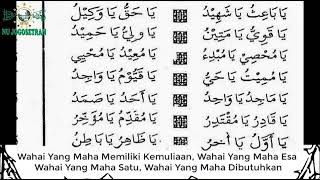 NU JOGOSETRAN
يَا بَاعِثُ يَا شَهِيْدُ يَا حَقُّ يَا وَكِيْلُ
يَا قَوِيُّ يَا مَتِيْنُ يَا وَلِيُّ يَا حَمِيْدُ
يَا مُحْصِيْ يَا مُبْدِئُ يَا مُعِيْدُ يَا مُحْيِيْ
يَا مُمِيْتُ يَا حَيُّ يَا قَيُّوْمُ يَا وَاجِدُ
يَا مَاجِدُ يَا وَاحِدُ يَا أَحَدُ يَا صَمَدُ
يَا قَادِرُ يَا مُقْتَدِرُ يَا مُقَدِّمُ يَا مُؤَخِّرُ
يَا أَوَّلُ يَا أٰخِرُ يَا ظَاهِرُ يَا بَاطِنُ
Wahai Yang Maha Memiliki Kemuliaan, Wahai Yang Maha Esa
Wahai Yang Maha Satu, Wahai Yang Maha Dibutuhkan